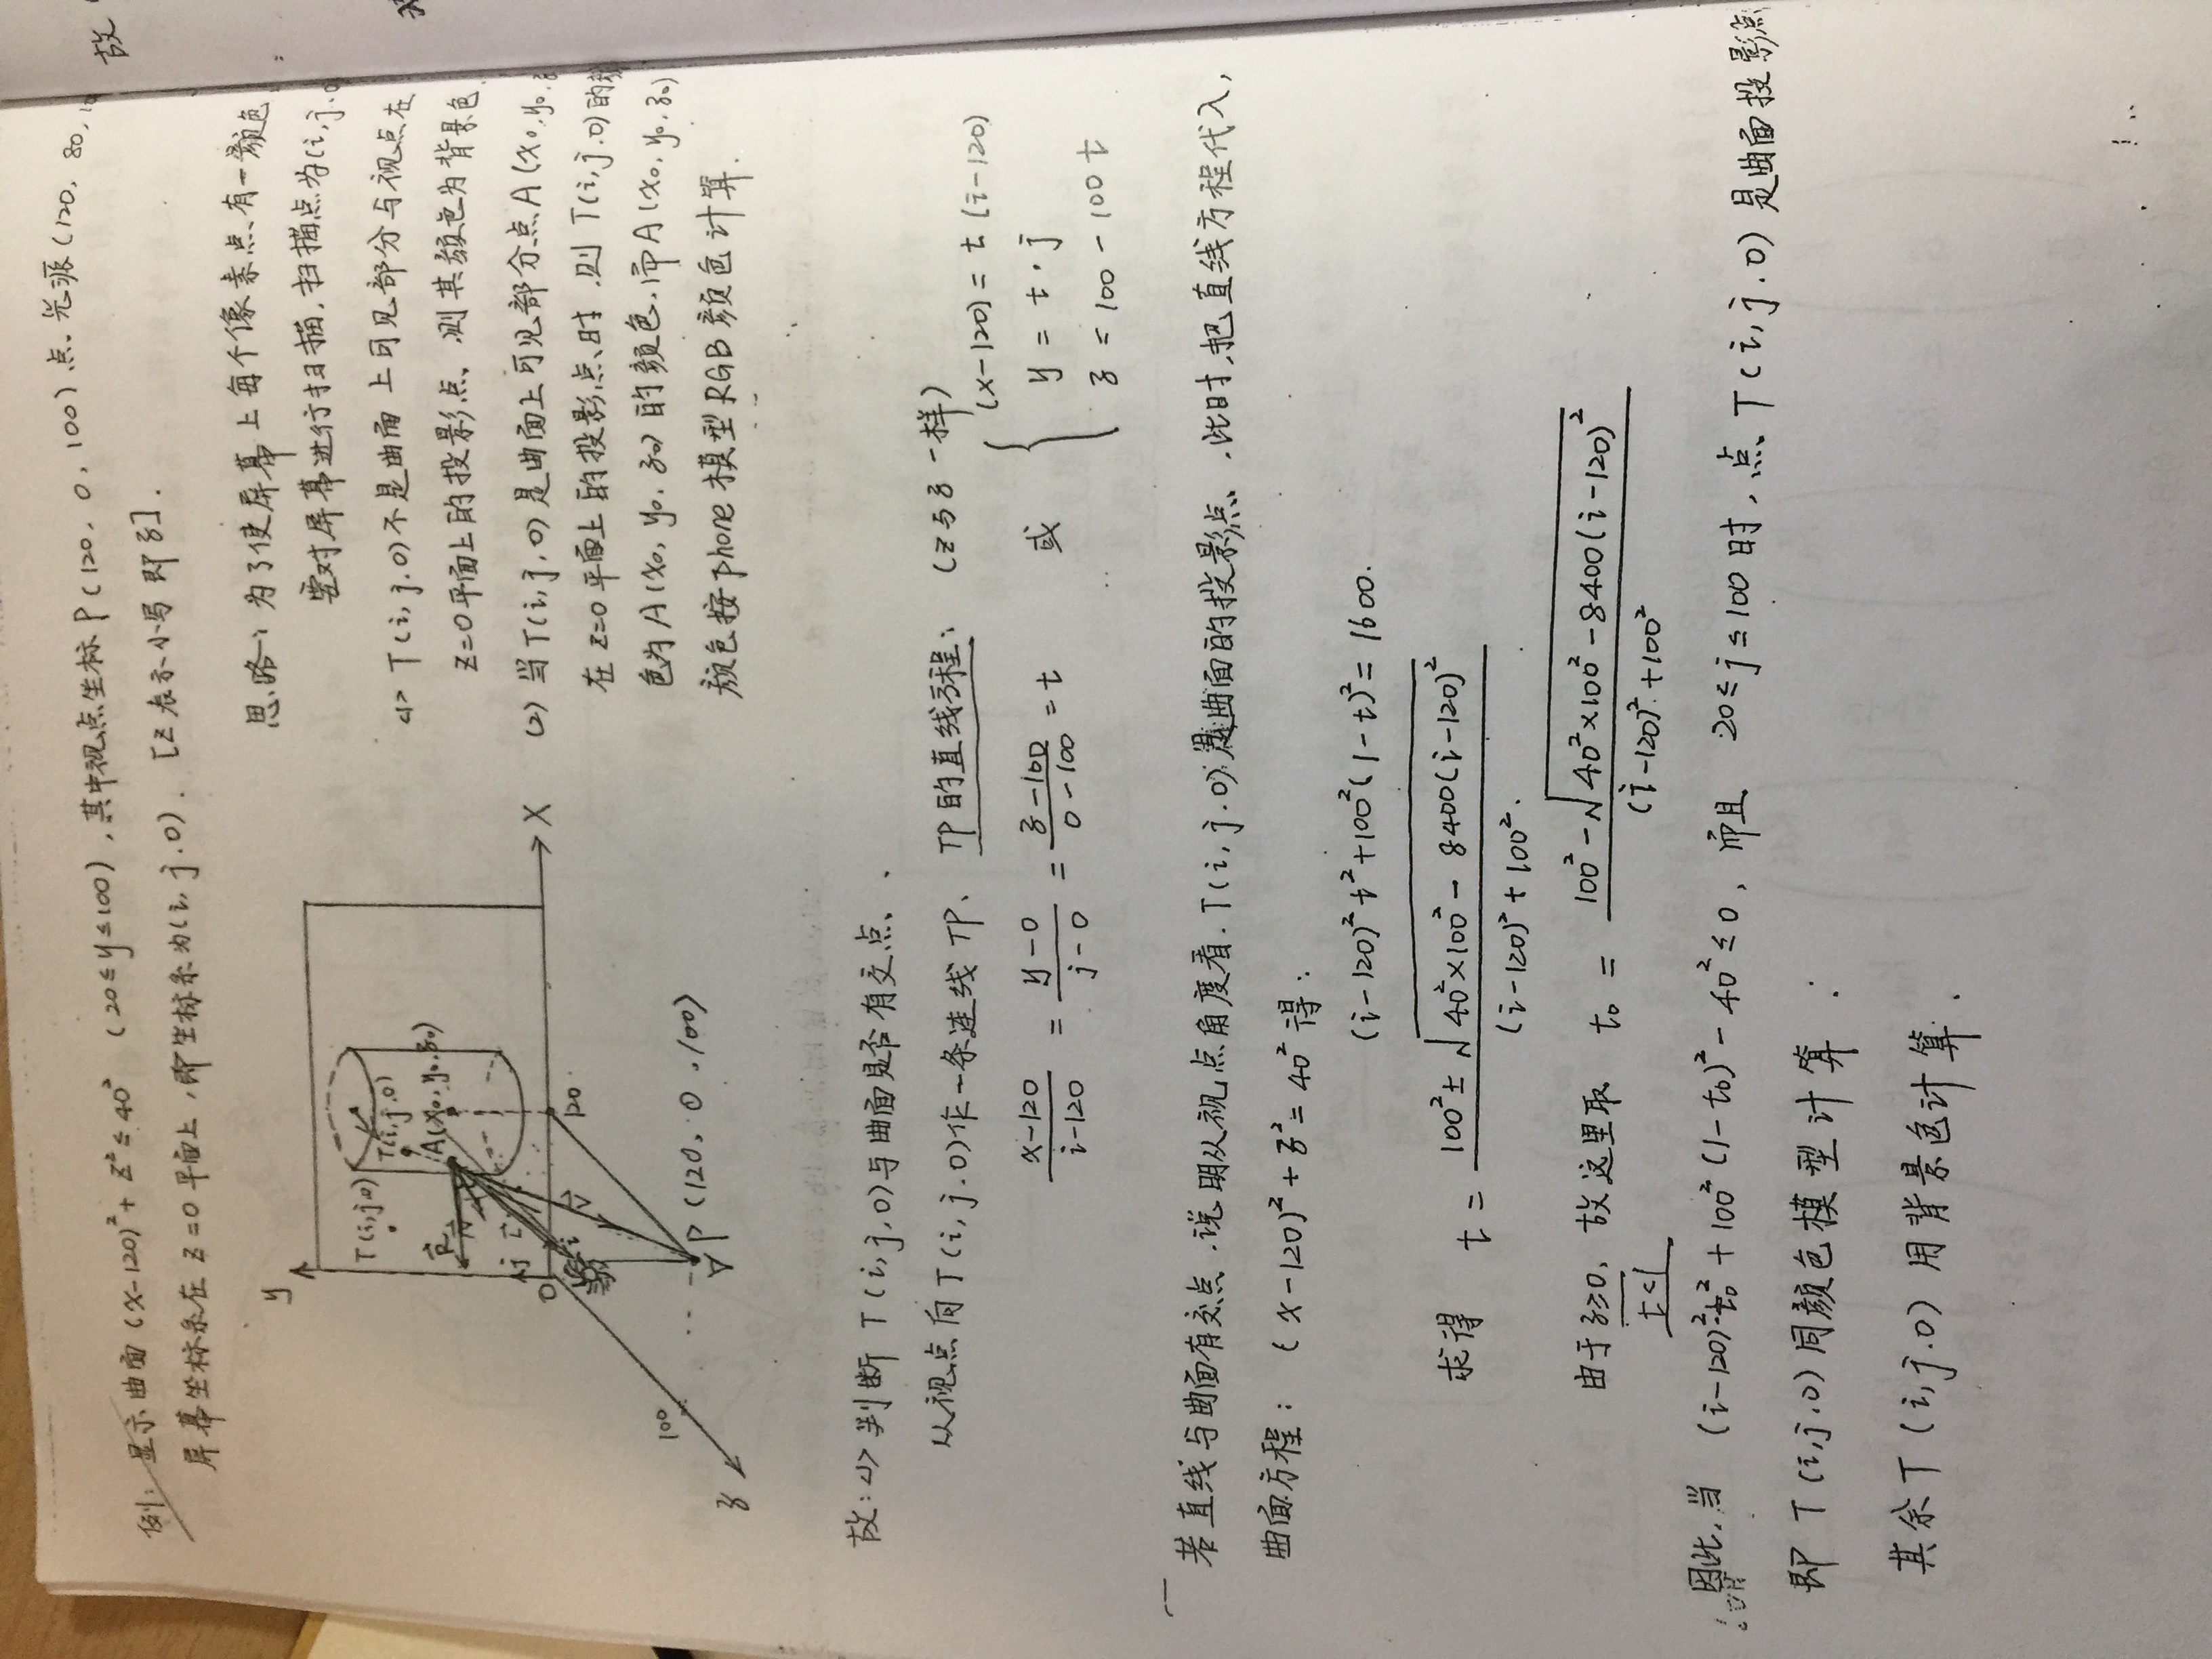 例: 显示曲面 (x-120)²+ z² ≤ 40² (20≤y≤100), 其中视点坐标 P(120, 0, 100)点. 光源(120, 80,
屏幕坐标系在 z=0 平面上, 即坐标系为(i, j.0). [z 表示小写 即 z].
思路: 为了使屏幕上每个像素点有一颜色
要对屏幕进行扫描, 扫描点为(i, j.0
<1> T(i, j.0)不是曲面上可见部分与视点在
z=0平面上的投影点, 则其颜色为背景色
(2) 当T(i, j, 0)是曲面上可见部分点A(x₀, y₀,
在z=0平面上的投影点时, 则 T(i, j.0)的颜
色为A(x₀, y₀, z₀)的颜色, 而A(x₀, y₀, z₀)
颜色按phone模型RGB颜色计算.
y
T(i,j,0)
T(i,j,0)
A(x₀, y₀, z₀)
R
N
j
L
O
i
V
120
X
100
z
P (120, 0, 100)
故: <1> 判断 T(i, j, 0)与曲面是否有交点.
从视点向T(i, j.0)作一条连线 TP. TP的直线方程: (z与z一样)
(x-120)/(i-120) = (y-0)/(j-0) = (z-100)/(0-100) = t 或 { (x-120) = t (i-120)
y = t · j
z = 100 - 100 t
若直线与曲面有交点, 说明从视点角度看, T(i, j.0)是曲面的投影点. 此时, 把直线方程代入,
曲面方程: (x-120)² + z² = 40² 得:
(i-120)² t² + 100² (1-t)² = 1600.
求得 t = (100² ± √(40²×100² - 8400(i-120)²)) / ((i-120)² + 100².)
由于z≥0, 故这里取 t₀ = (100² - √(40²×100² - 8400(i-120)²)) / ((i-120)² + 100²)
t<1
因此, 当 (i-120)² t₀² + 100² (1-t₀)² - 40² ≤ 0, 而且 20≤j≤100时, 点 T(i, j.0) 是曲面投影点
即 T(i,j.0)同颜色模型计算 :
其余T (i, j.0) 用背景色计算.
故